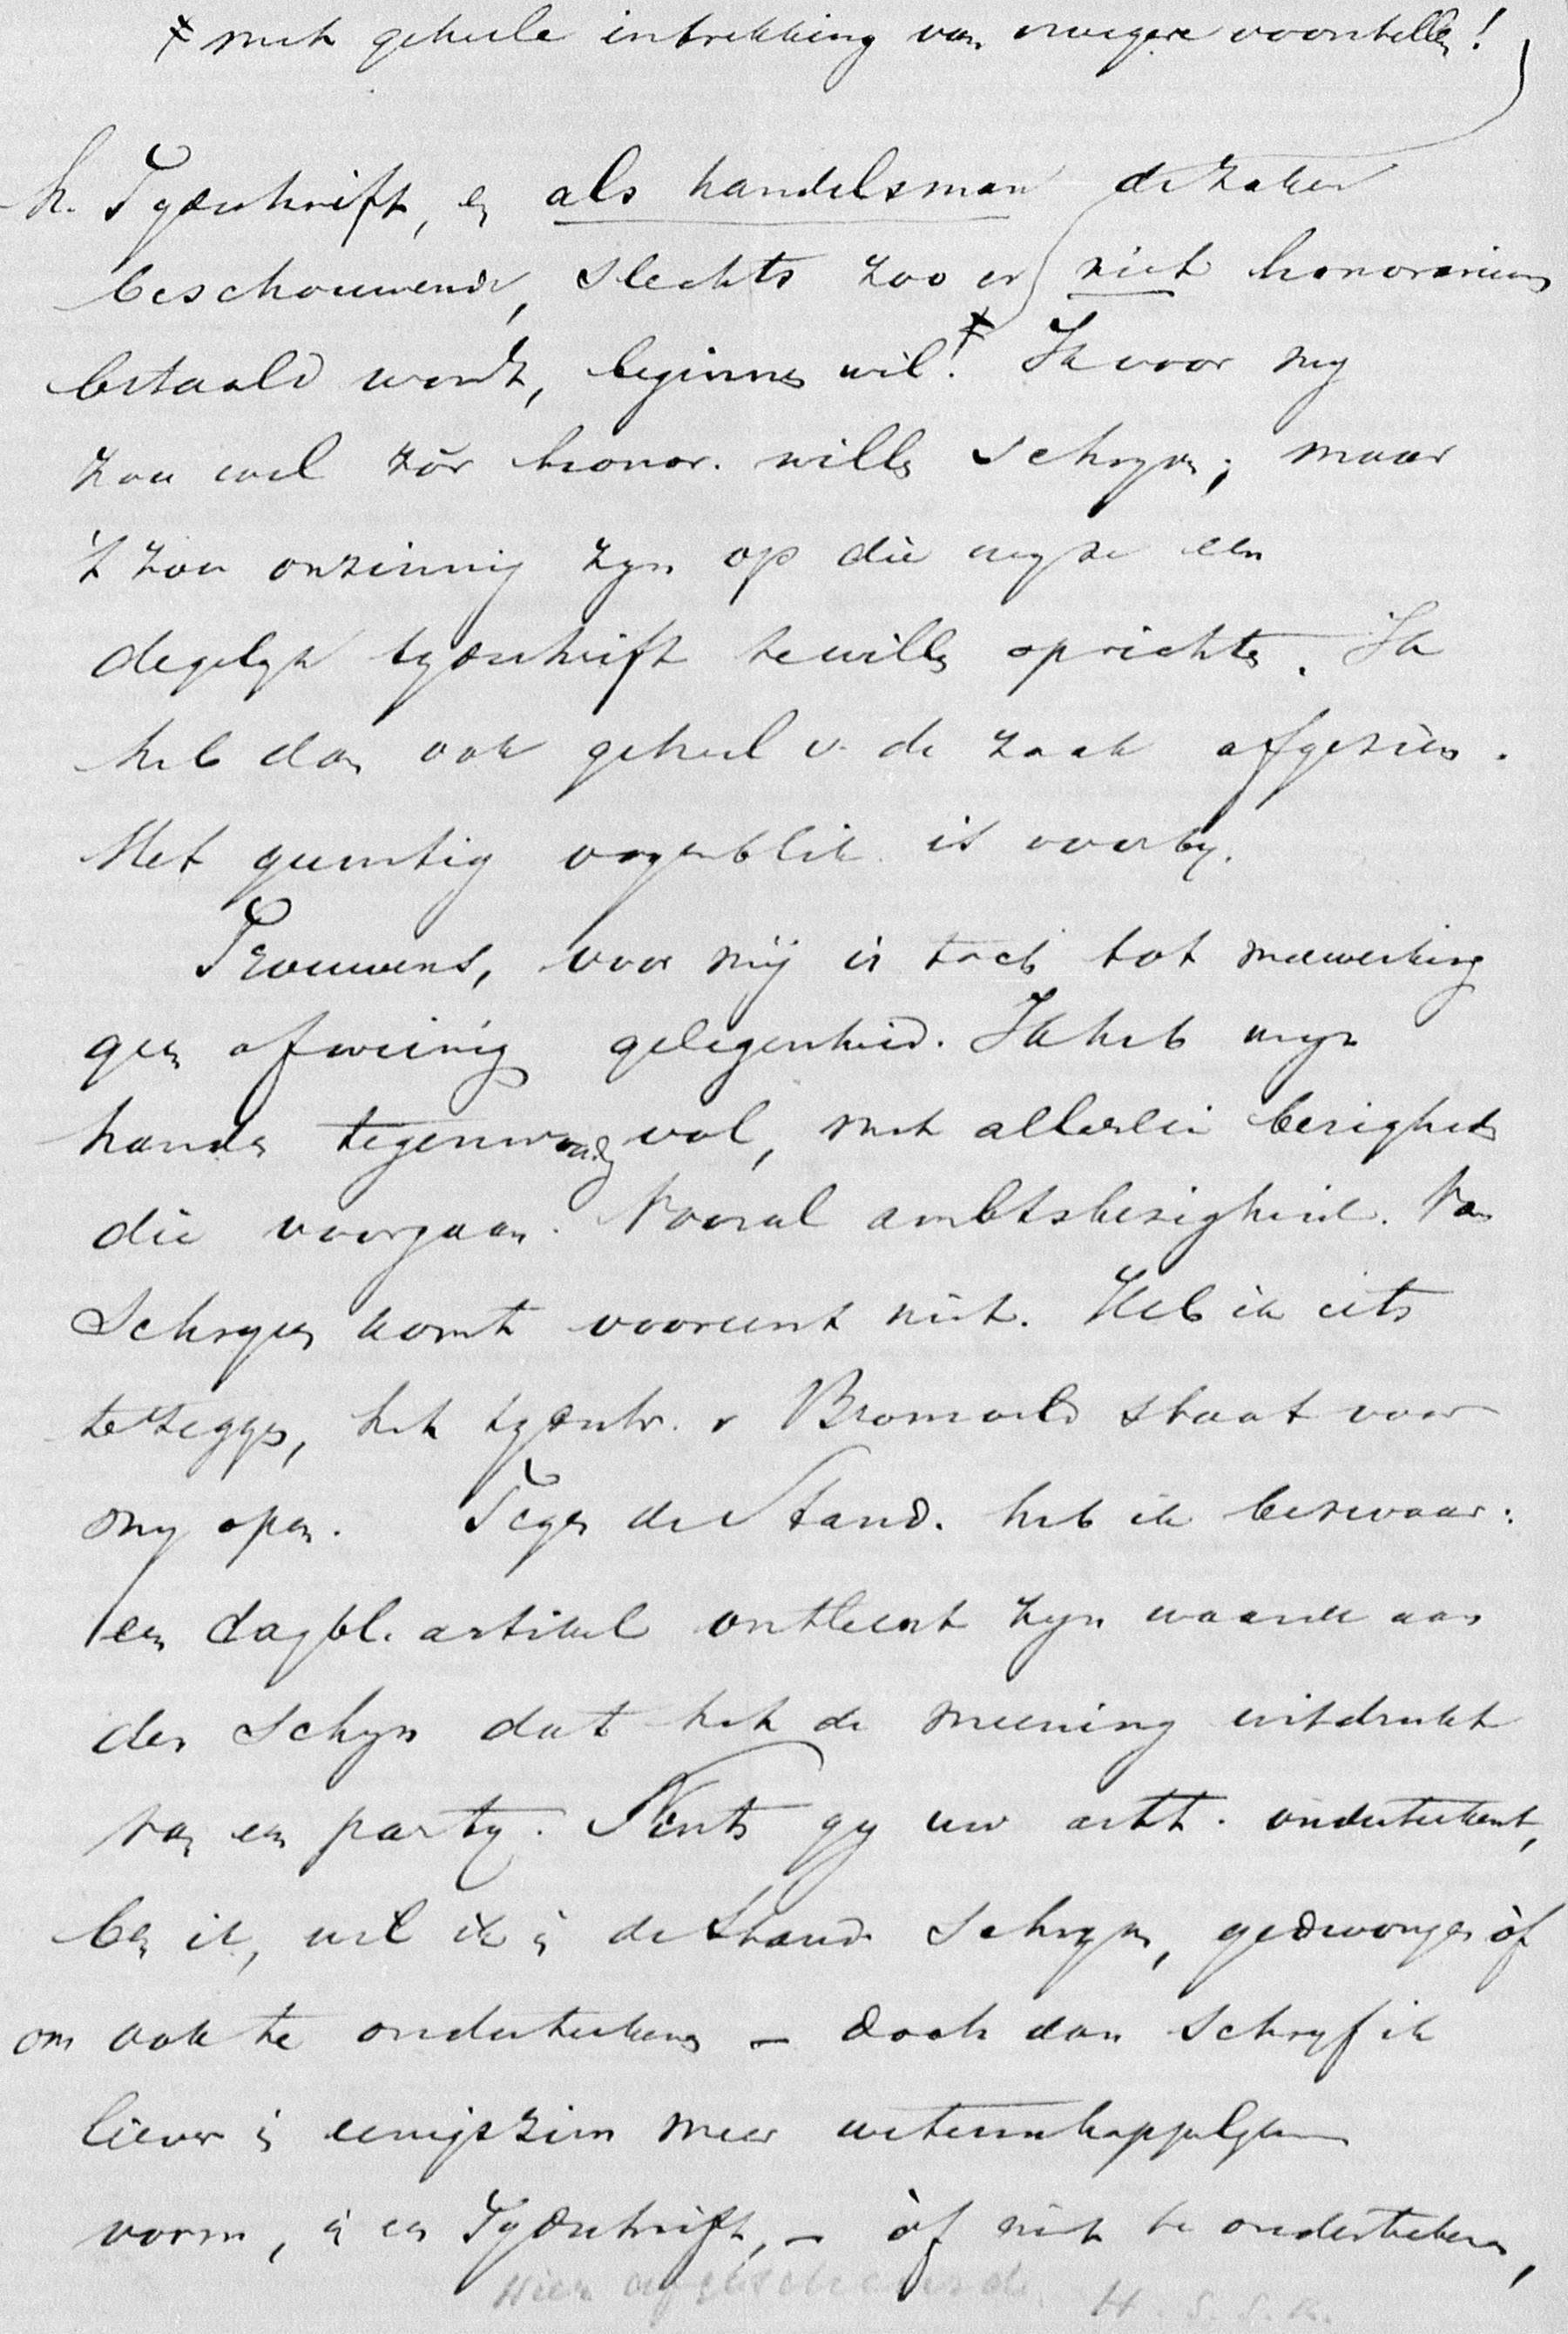 × met geheele intrekking van vroegere voorstellen!
h. Tydschrift, en als handelsman de zaken
beschouwend, slechts zoo er niet honorarium
betaald wordt, beginnen wil! × Ik voor my
zou wel zór honor. willen schryven; maar
't zou onzinnig zyn op die wyze een
degelyk tydschrift te willen oprichten. Ik
heb dan ook geheel v. de zaak afgezien.
Het gunstig oogenblik is voorby.
Trouwens, voor mij is toch tot meewerking
geen of weinig gelegenheid. Ik heb myn
handen tegenwoordig vol, met allerlei bezigheden
die voorgaan. Vooral ambtsbezigheid. Van
Schryven komt vooreerst niet. Heb ik iets
te zeggen, het tydschr. v Bronsveld staat voor
my open. Tegen de Stand. heb ik bezwaar:
een dagbl. artikel ontleent zyn waarde aan
den schyn dat het de meening uitdrukt
van een party. Nents gy uw artt. onderteekent,
ben ik, wil ik in de Stand. schryven, gedwongen òf
om ook te onderteekenen – doch dan schryf ik
liever in eenigszins meer wetenschappelyken
vorm, in een Tydschrift, – òf niet te onderteekenen,
Hier afgescheurd. H. S. S. K.